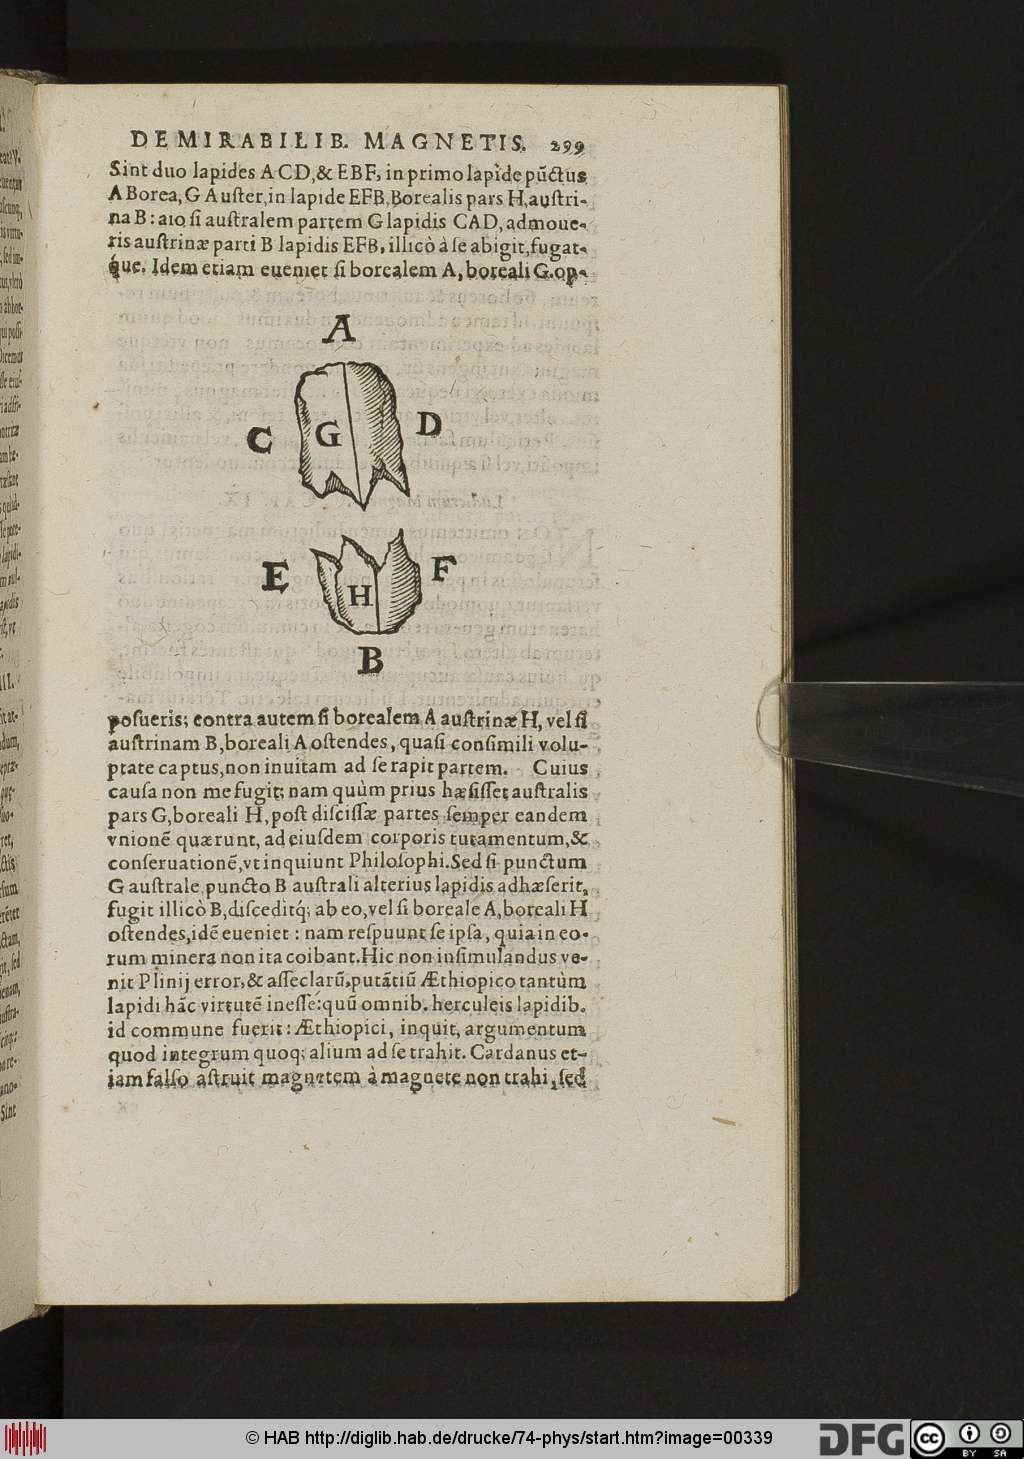 DE MIRABILIB. MAGNETIS. 299
Sint duo lapides A CD, & EBF, in primo lapide pũctus
A Borea, G Auster, in lapide EFB, Borealis pars H, austri-
na B: aio si australem partem G lapidis CAD, admoue-
ris austrinæ parti B lapidis EFB, illicò à se abigit, fugat-
que. Idem etiam eueniet si borealem A, boreali G. op-
A
C G D
E H F
B
posueris; contra autem si borealem A austrinæ H, vel si
austrinam B, boreali A ostendes, quasi consimili volu-
ptate captus, non inuitam ad se rapit partem. Cuius
causa non me fugit; nam quùm prius hæsisset australis
pars G, boreali H, post discissæ partes semper eandem
vnionẽ quærunt, ad eiusdem corporis tutamentum, &
conseruationẽ, vt inquiunt Philosophi. Sed si punctum
G australe, puncto B australi alterius lapidis adhæserit,
fugit illicò B, disceditq́; ab eo, vel si boreale A, boreali H
ostendes, idẽ eueniet: nam respuunt se ipsa, quia in eo-
rum minera non ita coibant. Hic non insimulandus ve-
nit Plinij error, & asseclarũ, putãtiũ Æthiopico tantùm
lapidi hãc virtutẽ inesse: quũ omnib. herculeis lapidib.
id commune fuerit: Æthiopici, inquit, argumentum
quod integrum quoq; alium ad se trahit. Cardanus et-
iam falso astruit magnetem à magnete non trahi, sed
© HAB http://diglib.hab.de/drucke/74-phys/start.htm?image=00339
DFG
cc BY SA